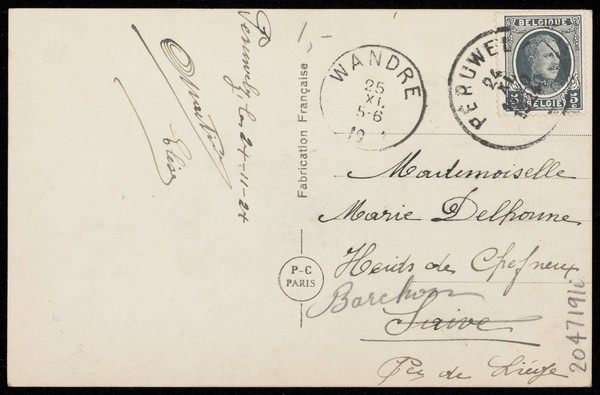 1,-
Peruwelz, les 24-11-24
Elise
Fabrication Française
P-C
PARIS
WANDRE
25
XI
5-6
19
PÉRUWE
24
BELGIQUE
BELGIË
5
Mademoiselle
Marie Delhonne
Heids de Chefneux
Barchon
Saive
Pce de Liége
2047191i